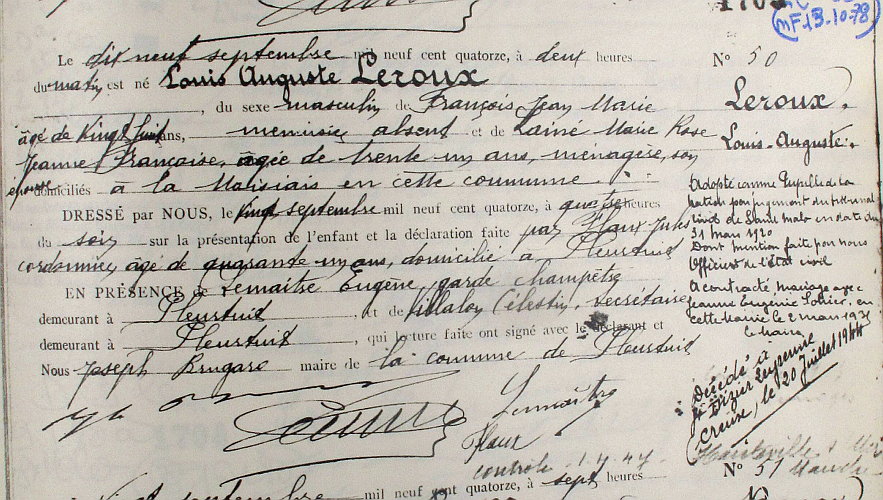 mF.13.10.78
Le dix neuf septembre mil neuf cent quatorze, à deux heures
du matin est né Louis Auguste Leroux
, du sexe masculin de François Jean Marie
âgé de vingt huit ans, menuisier absent et de Lainé Marie Rose
Jeanne Françoise, âgée de trente un ans, ménagère, son
épouse domiciliés à la Maisiais en cette commune.
DRESSÉ par NOUS, le vingt septembre mil neuf cent quatorze, à quatre heures
du soir sur la présentation de l'enfant et la déclaration faite par Flaux Jules
cordonnier, âgé de quarante un ans, domicilié à Pleurtuit
EN PRÉSENCE de Lemaître Eugène garde champêtre
demeurant à Pleurtuit et de Villalon Célestin, secrétaire
demeurant à Pleurtuit, qui lecture faite ont signé avec le déclarant et
Nous Joseph Brugaro maire de la commune de Pleurtuit
Lemaître
Flaux
contrôle 1.4.47
N° 50
Leroux.
Louis-Auguste.
Adopté comme Pupille de la
Nation par jugement du tribunal
civil de Saint Malo en date du
31 mars 1920
Dont mention faite par nous
Officier de l'état civil
A contracté mariage avec
Jeanne Eugénie Lohier, en
cette Mairie le 2 mars 19
le Maire
Décédé à
St Dizier Leyrenne
Creuse, le 20 Juillet 1944
Hauteville s Mer
Manche
N° 51
septembre mil neuf cent quatorze, à sept heures